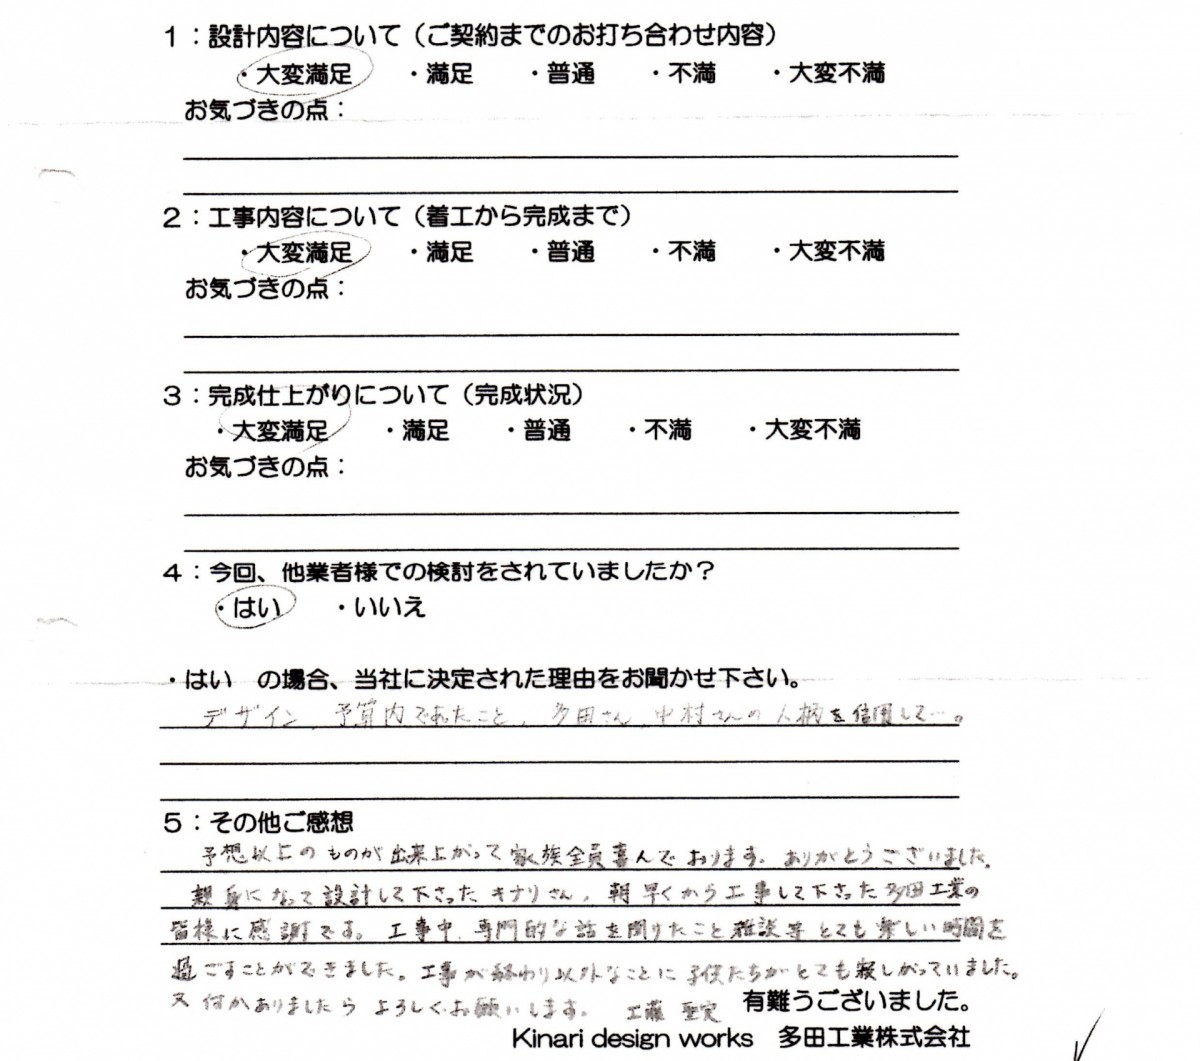 1：設計内容について（ご契約までのお打ち合わせ内容）
・大変満足　・満足　・普通　・不満　・大変不満
お気づきの点：
2：工事内容について（着工から完成まで）
・大変満足　・満足　・普通　・不満　・大変不満
お気づきの点：
3：完成仕上がりについて（完成状況）
・大変満足　・満足　・普通　・不満　・大変不満
お気づきの点：
4：今回、他業者様での検討をされていましたか？
・はい　・いいえ
・はい　の場合、当社に決定された理由をお聞かせ下さい。
デザイン、予算内であったこと、多田さん、中村さんの人柄を信用して…。
5：その他ご感想
予想以上のものが出来上がって家族全員喜んでおります。ありがとうございました。
親身になって設計して下さったキナリさん、朝早くから工事して下さった多田工業の
皆様に感謝です。工事中、専門的な話を聞けたこと雑談等とても楽しい時間を
過ごすことができました。工事が終わり以外なことに子供たちがとても寂しがっていました。
又何かありましたらよろしくお願いします。工藤
有難うございました。
Kinari design works　多田工業株式会社